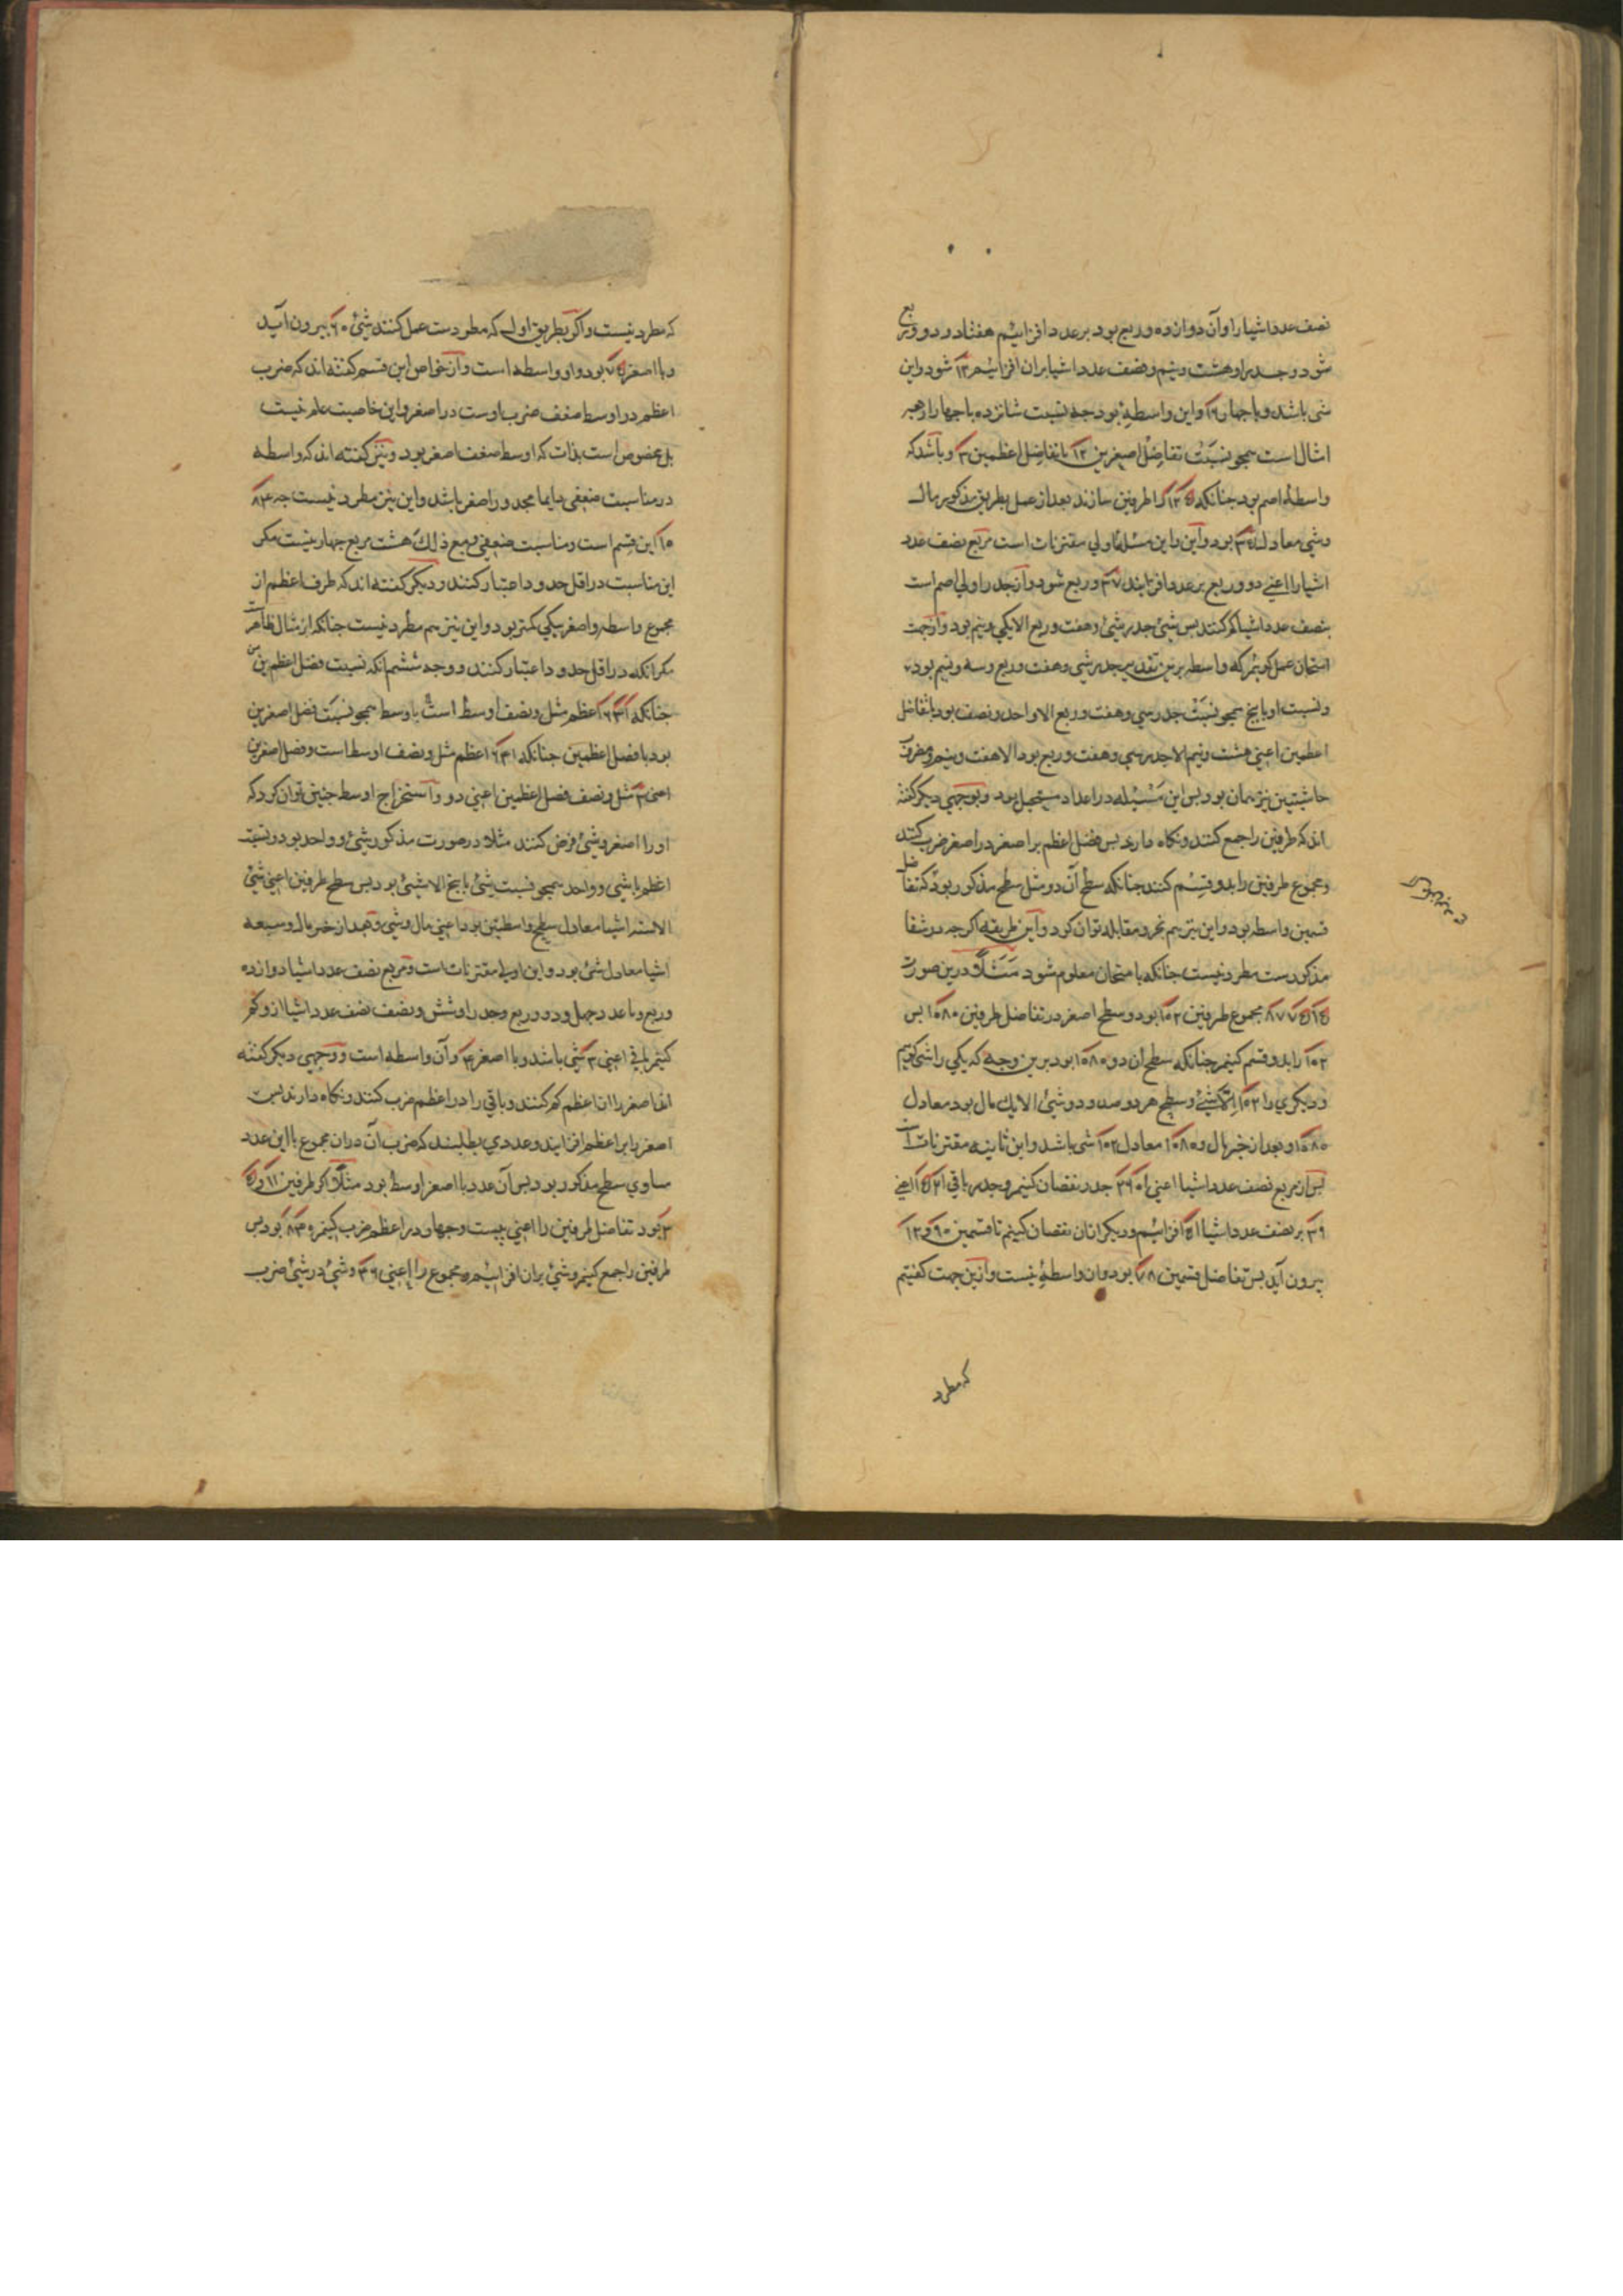 نصف عدد اشیا را و آن دوازده و ربع بود بر عدد افزائیم هفتاد و دو و ربع
شود و جذر او هشت و نیم و نصف عدد اشیا بران افزائیم ۱۲ شود و این
شی باشد و با چهار ۱۶ و این واسطهٔ بود چه نسبت شانزده با چهار او چهار
امثال است همچو نسبت تفاضل اصغرین ۱۲ با تفاضل اعظمین ۳ و باشد که
واسطهٔ اصم بود چنانکه ۵ ۱۳ را طرفین سازند بعد از عمل بطریق مذکور مال
و شی معادل بود و این این مسئلهٔ اولی مقترنات است مربع نصف عدد
اشیا را اعنی دو و ربع بر عدد افزایند ۳۷ و ربع شود و از جذر او لی اصم است
نصف عدد اشیا کم کنند پس شی جذر شی و هفت و ربع الا یکی و نیم بود و از جهت
امتحان عمل کوئیم که واسطه برین تقدیر جذر شی و هفت و ربع و سه و نیم بود
و نسبت او با پنج همچو نسبت جذر سی و هفت و ربع الا واحد و نصف بود با تفاضل
اعظمین اعنی هشت و نیم الا جذر سی و هفت و ربع بود الا هفت و نیم و مضروب
حاشیتین نیز همان بود پس این مسئله در اعداد مستحیل بود و بوجهی دیکر کفته
اند که طرفین را جمع کنند و نکاه دارند پس فضل اعظم بر اصغر در اصغر ضرب کنند
و مجموع طرفین را بدو قسم کنند چنانکه سطح آن دو مثل سطح مذکور بود که تفاضل
قسمین واسطه بود و این نیز هم بجبر و مقابله توان کرد و این طریقه اکر چه در شفا
مذکورست مطرد نیست چنانکه با متحان معلوم شود مثلاً درین صورت
۱۵ ۷۵ ۸۷ مجموع طرفین ۱۰۲ بود و سطح اصغر در تفاضل طرفین ۱۰۸۰ پس
۱۰۲ را بدو قسم کنیم چنانکه سطح ان دو ۱۰۸۰ بود برین وجه که یکی را شی کوئیم
و دیکری را ۱۰۲ الا شیئ و سطح هر دو صد و دو شیئ الا یک مال بود معادل
۱۰۸۰ و بعد از جبر مال و ۱۰۸۰ معادل ۱۰۲ شی باشد و این ثانیه مقترنات است
پس از مربع نصف عدد اشیا اعنی جذر نقصان کنیم و جذر باقی ۱۵۲۱ اعنی
۳۹ بر نصف عدد اشیا ۵۱ افزائیم و دیکر ازان نقصان کنیم تا قسمین ۹۰ و ۱۲
بیرون آید پس تفاضل قسمین ۷۸ بود و ان واسطهٔ نیست و ازین جهت کفتیم
که مطرد
که مطرد نیست و اکر بطریق اولی که مطردست عمل کنند شیئ ۶۰ بیرون آید
و با اصغر ۷۵ بود و او واسطه است و از خواص این قسم کفته اند که ضرب
اعظم در اوسط ضعف ضرب اوست در اصغر و این خاصیت عام نیست
بل مخصوص است بذات که اوسط ضعف اصغر بود و نیز کفته اند که واسطه
در مناسبت ضعفی دایما مجذور اصغر باشد و این نیز مطرد نیست چه ۴ ۸
۱۰ این قسم است و مناسبت ضعفی و مع ذلک هشت مربع چهار نیست مکر
این مناسبت در اقل حدود اعتبار کنند و دیکر کفته اند که طرف اعظم از
مجموع واسطه و اصغر بیکی کمتر بود و این نیز هم مطرد نیست چنانکه از مثال ظاهرست
مکر انکه در اقل حدود اعتبار کنند و وجه ششم انکه نسبت فضل اعظمین
چنانکه ۱ ۴ ۶ اعظم مثل و نصف اوسط است با وسط همچو نسبت فضل اصغرین
بود با فضل اعظمین چنانکه ۱ ۴ ۶ اعظم مثل و نصف اوسط است و فضل اصغرین
اعنی ۳ مثل و نصف فضل اعظمین اعنی دو و استخراج اوسط چنین توان کرد که
او را اصغر و شیئ فرض کنند مثلا در صورت مذکور شیئ و واحد بود و نسبت
اعظم با شی و واحد همچو نسبت شیئ با پنج الا شیئ بود پس سطح طرفین اعنی شیئ
الا ستة اشیا معادل سطح واسطتین بود اعنی مال و شیئ و بعد از جبر مال و سبعه
اشیا معادل شئ بود و این اولی مقترنات است و مربع نصف عدد اشیا دوازده
و ربع و با عدد چهل و دو و ربع و جذر او شش و نصف نصف عدد اشیا از و کم
کنیم باقی اعنی ۳ شی باشد و با اصغر ۴ و آن واسطه است و وجهی دیکر کفته
اند اصغر را از اعظم کم کنند و باقی را در اعظم ضرب کنند و نکاه دارند پس
اصغر را بر اعظم افزایند و عددی بطلبند که ضرب آن دران مجموع با این عدد
مساوی سطح مذکور بود پس آن عدد با اصغر اوسط بود مثلاً اکر طرفین
بود تفاضل طرفین را اعنی بیست و چهار در اعظم ضرب کنیم بود پس
طرفین را جمع کنیم و شیئ بران افزائیم و مجموع را اعنی ۳۶ و شیئ در شیئ ضرب